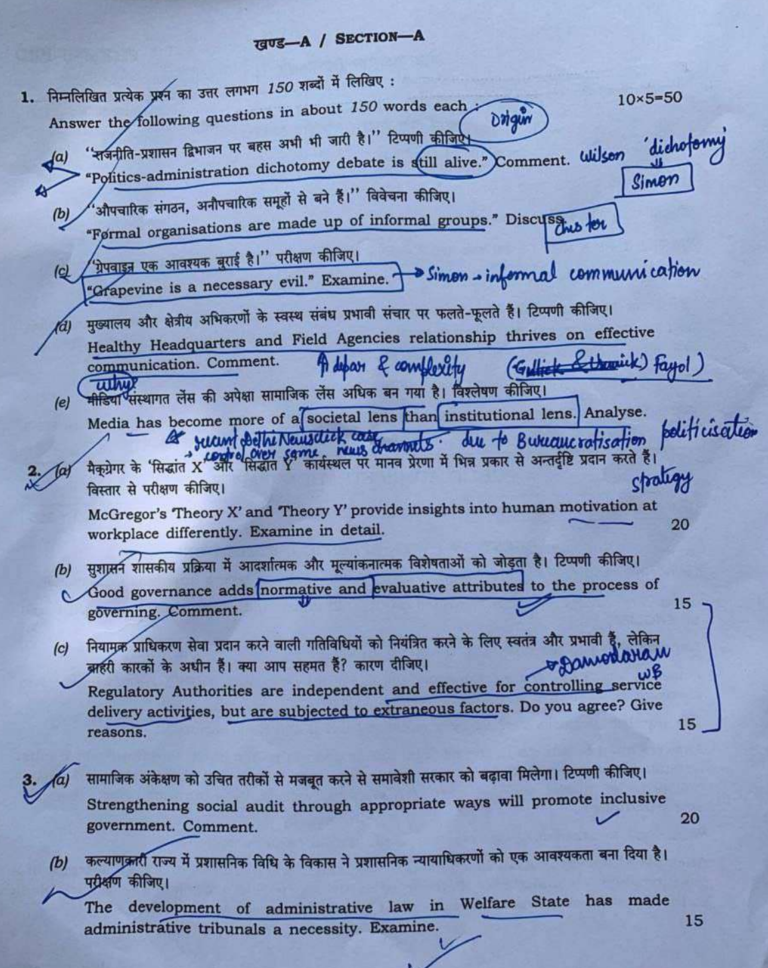 खण्ड—A / SECTION—A
1. निम्नलिखित प्रत्येक प्रश्न का उत्तर लगभग 150 शब्दों में लिखिए :
Answer the following questions in about 150 words each :
10×5=50
Origin
(a) "राजनीति-प्रशासन द्विभाजन पर बहस अभी भी जारी है।" टिप्पणी कीजिए।
"Politics-administration dichotomy debate is still alive." Comment.
Wilson 'dichotomy'
Simon
(b) "औपचारिक संगठन, अनौपचारिक समूहों से बने हैं।" विवेचना कीजिए।
"Formal organisations are made up of informal groups." Discuss.
(c) "ग्रेपवाइन एक आवश्यक बुराई है।" परीक्षण कीजिए।
"Grapevine is a necessary evil." Examine.
Simon → informal communication
(d) मुख्यालय और क्षेत्रीय अभिकरणों के स्वस्थ संबंध प्रभावी संचार पर फलते-फूलते हैं। टिप्पणी कीजिए।
Healthy Headquarters and Field Agencies relationship thrives on effective
communication. Comment.
& complexity
Fayol)
why?
(e) मीडिया संस्थागत लेंस की अपेक्षा सामाजिक लेंस अधिक बन गया है। विश्लेषण कीजिए।
Media has become more of a societal lens than institutional lens. Analyse.
recent Newsclick case
control over some news channels.
due to Bureaucratisation politicisation
2. (a) मैक्ग्रेगर के 'सिद्धांत X' और 'सिद्धांत Y' कार्यस्थल पर मानव प्रेरणा में भिन्न प्रकार से अन्तर्दृष्टि प्रदान करते हैं।
विस्तार से परीक्षण कीजिए।
strategy
McGregor's 'Theory X' and 'Theory Y' provide insights into human motivation at
workplace differently. Examine in detail.
20
(b) सुशासन शासकीय प्रक्रिया में आदर्शात्मक और मूल्यांकनात्मक विशेषताओं को जोड़ता है। टिप्पणी कीजिए।
Good governance adds normative and evaluative attributes to the process of
governing. Comment.
15
(c) नियामक प्राधिकरण सेवा प्रदान करने वाली गतिविधियों को नियंत्रित करने के लिए स्वतंत्र और प्रभावी हैं, लेकिन
बाहरी कारकों के अधीन हैं। क्या आप सहमत हैं? कारण दीजिए।
Damodaran
WB
Regulatory Authorities are independent and effective for controlling service
delivery activities, but are subjected to extraneous factors. Do you agree? Give
reasons.
15
3. (a) सामाजिक अंकेक्षण को उचित तरीकों से मजबूत करने से समावेशी सरकार को बढ़ावा मिलेगा। टिप्पणी कीजिए।
Strengthening social audit through appropriate ways will promote inclusive
government. Comment.
20
(b) कल्याणकारी राज्य में प्रशासनिक विधि के विकास ने प्रशासनिक न्यायाधिकरणों को एक आवश्यकता बना दिया है।
परीक्षण कीजिए।
The development of administrative law in Welfare State has made
administrative tribunals a necessity. Examine.
15